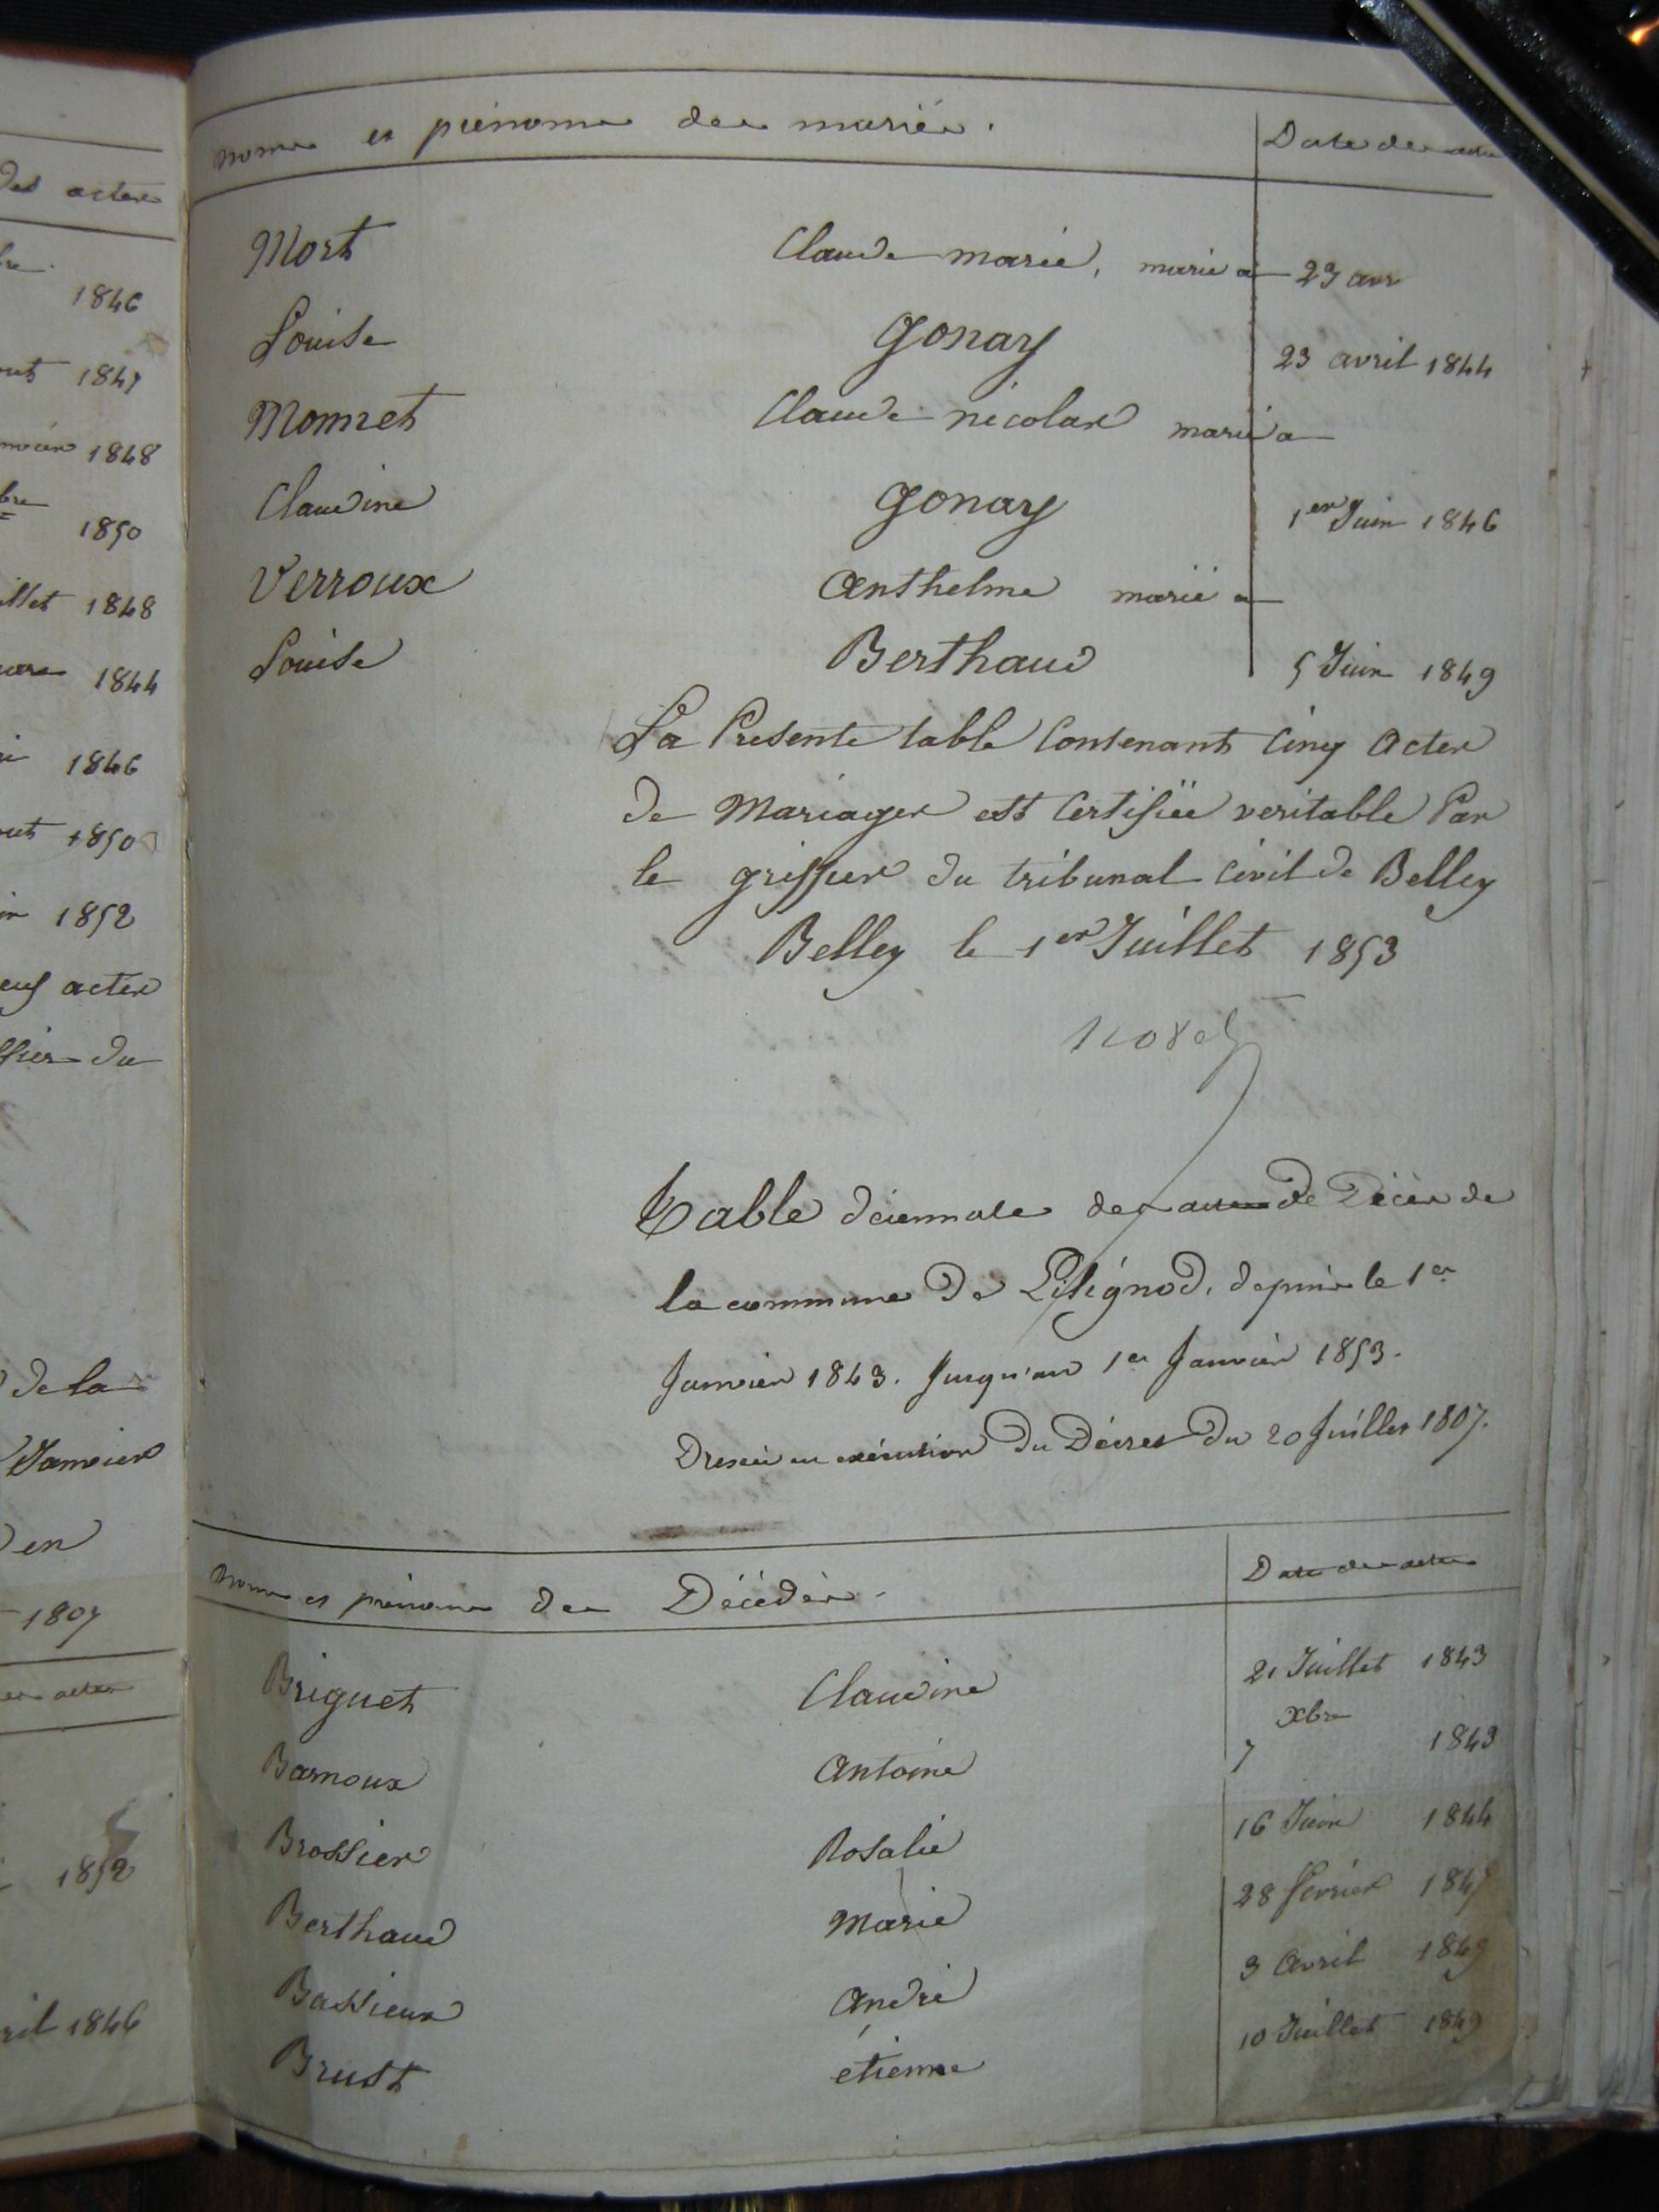 des actes
1846
1847
1848
bre
1850
illet 1848
1844
1846
1850
1852
actes
du
de la
Janvier
en
1807
1852
1846
noms et prénoms des mariés.
Date des actes
Mort Claude marie, marié a 23 avr
Louise Gonay 23 avril 1844
Monnet Claude nicolas marié a
Claudine Gonay 1er Juin 1846
Verroux Anthelme marié a
Louise Berthaud 5 Juin 1849
La Presente table Contenant Cinq Actes
de Mariages est Certifiée veritable Par
le griffier du tribunal Civil de Belley
Belley le 1er Juillet 1853
Table décennale des actes de Décès de
la commune de Lilignod, depuis le 1er
Janvier 1843. Jusqu'au 1er Janvier 1853.
Dressée en exécution du Décret du 20 Juillet 1807.
Noms et prénoms des Décédés.
Date des actes
Briguet Claudine 21 Juillet 1843
Barnoux Antoine 7 xbre 1843
Brossier Rosalie 16 Juin 1844
Berthaud Marie 28 fevrier 1847
Bassieux André 3 Avril 1849
Brust étienne 10 Juillet 1849